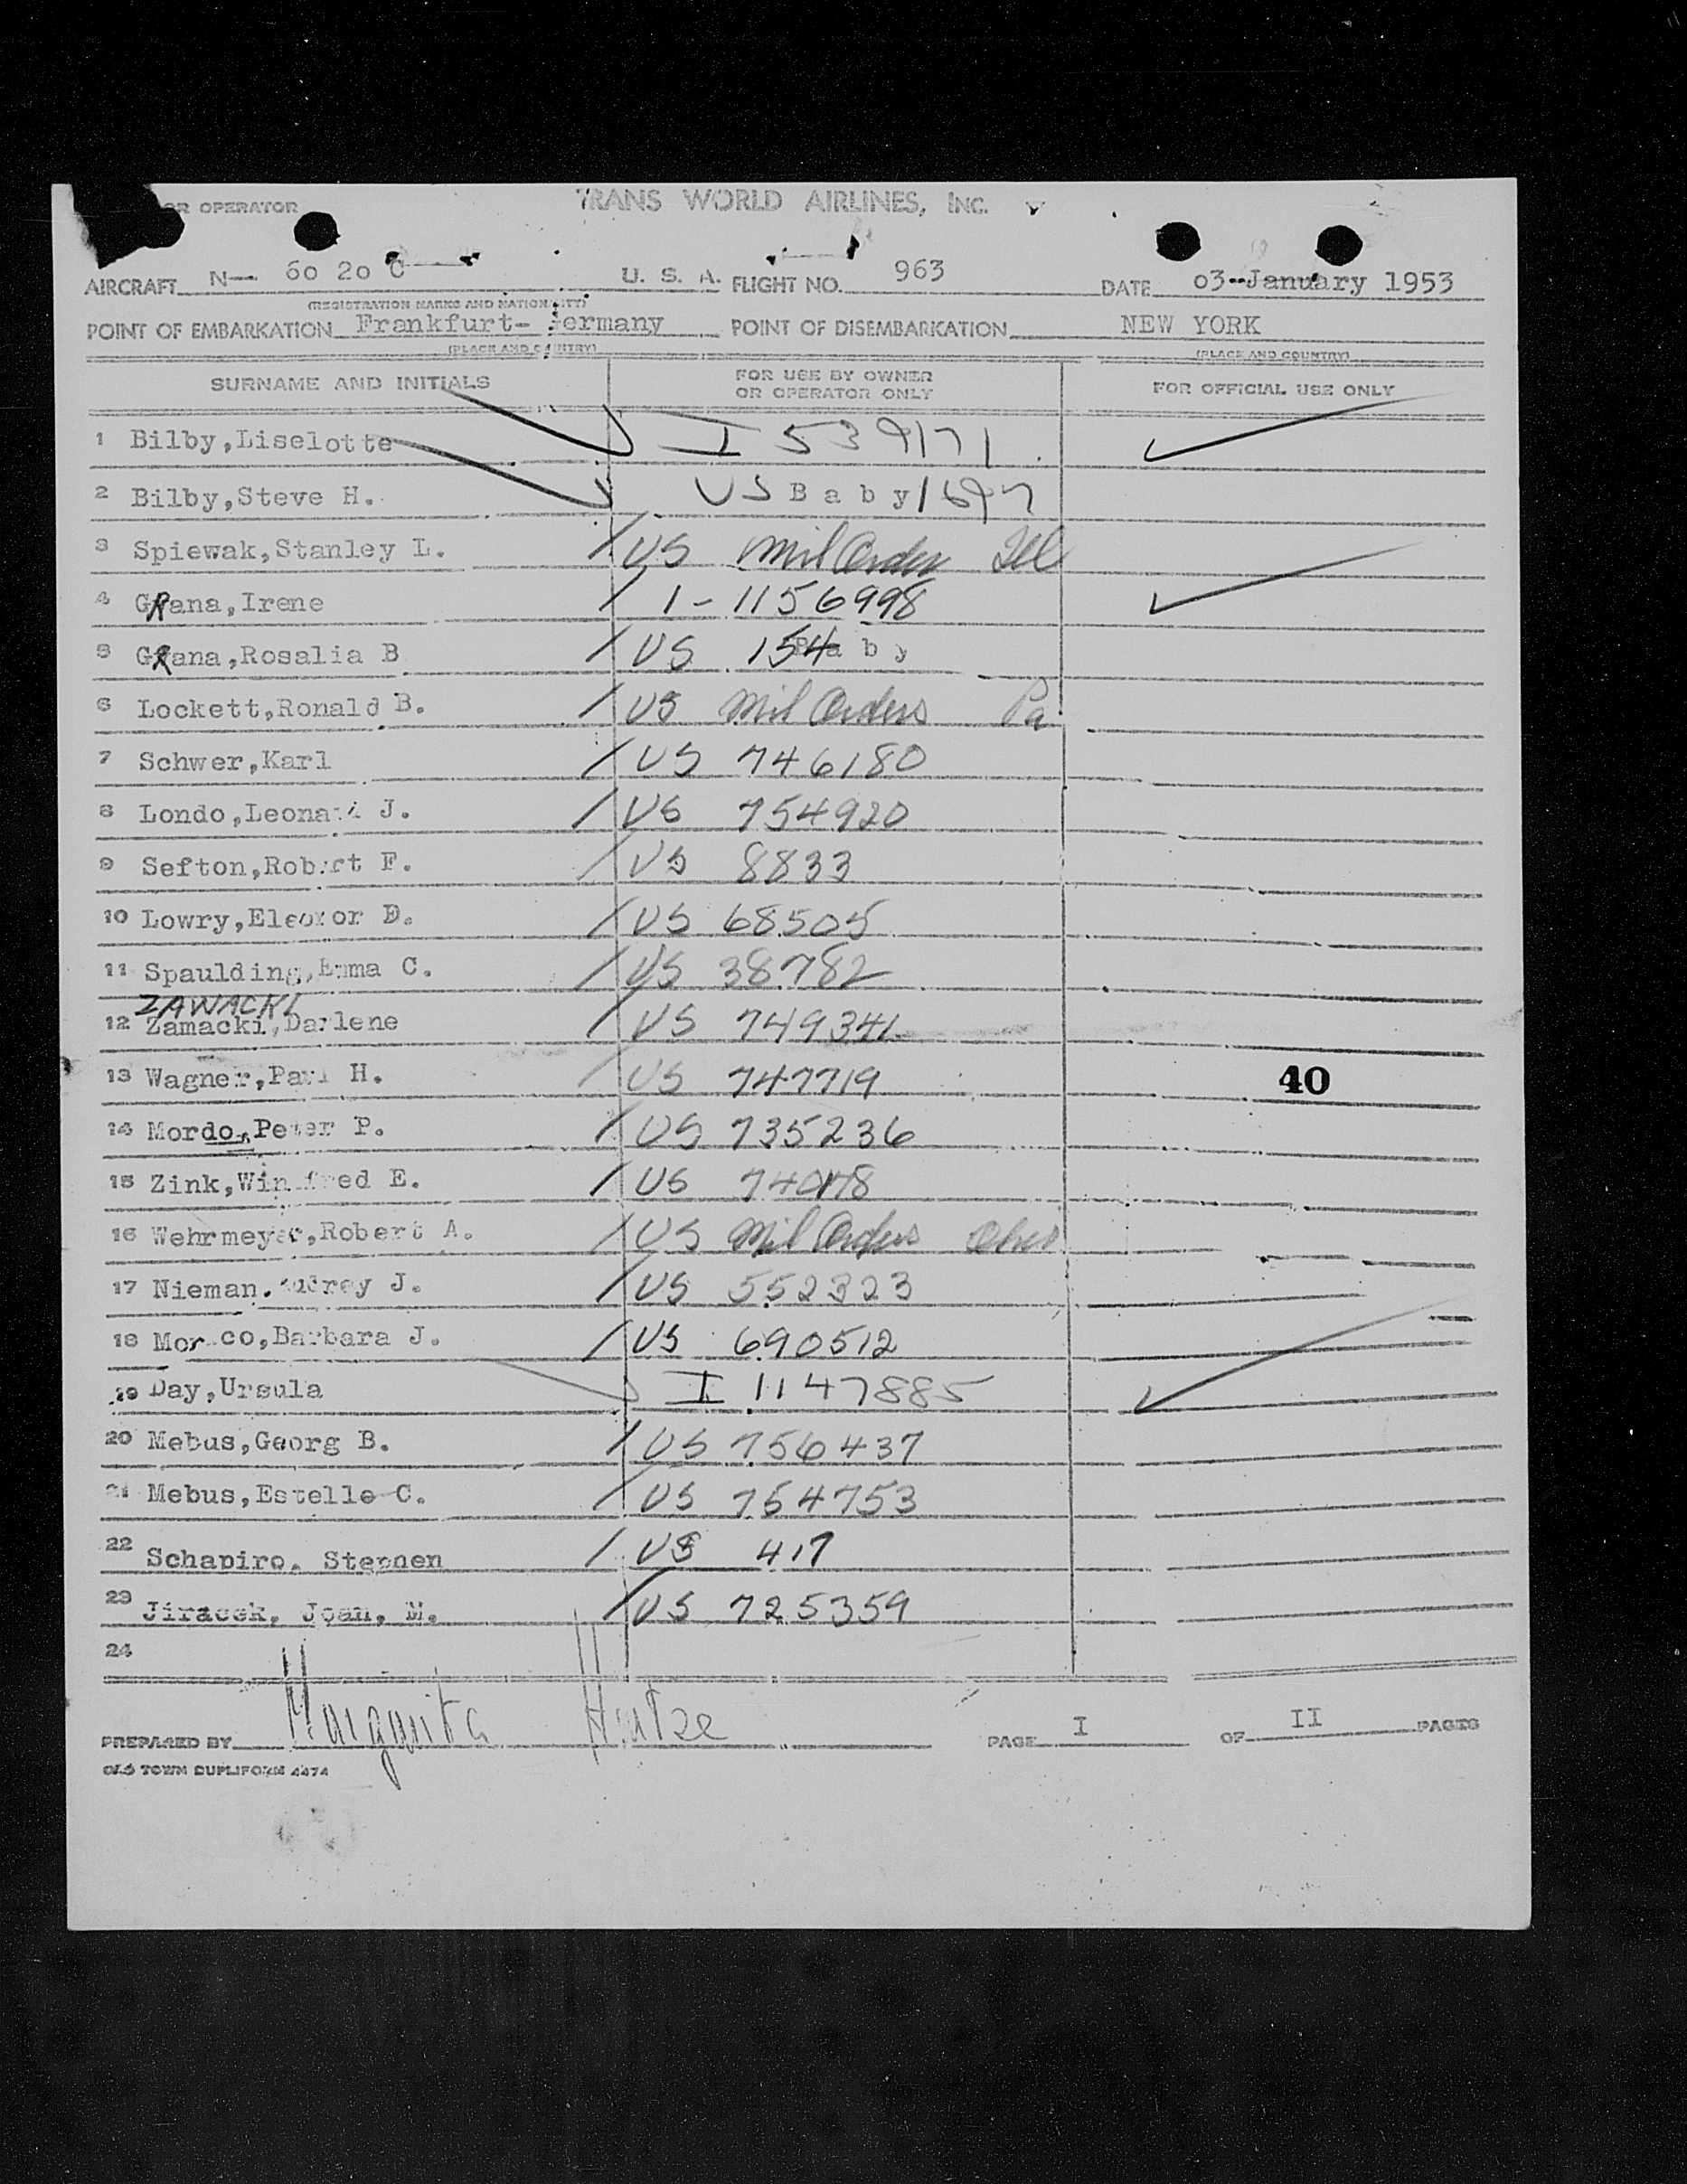 OR OPERATOR TRANS WORLD AIRLINES, INC.
AIRCRAFT N- 60 20 C U. S. A. FLIGHT NO. 963 DATE 03-January 1953
(REGISTRATION MARKS AND NATIONALITY)
POINT OF EMBARKATION Frankfurt- Germany POINT OF DISEMBARKATION NEW YORK
(PLACE AND COUNTRY) (PLACE AND COUNTRY)
SURNAME AND INITIALS FOR USE BY OWNER OR OPERATOR ONLY FOR OFFICIAL USE ONLY
1 Bilby,Liselotte I 539171
2 Bilby,Steve H. US Baby/697
3 Spiewak,Stanley L. US Mil Order
4 GRana,Irene I-1156998
5 GRana,Rosalia B US 154 Baby
6 Lockett,Ronald B. US Mil Orders Pa
7 Schwer,Karl US 746180
8 Londo,Leonard J. US 754920
9 Sefton,Robert F. US 8833
10 Lowry,Eleonor D. US 68505
11 Spaulding,Emma C. US 38782
ZAWACKI
12 Zamacki,Darlene US 749341
13 Wagner,Paul H. US 747719 40
14 Mordo,Peter P. US 735236
15 Zink,Winifred E. US
16 Wehrmeyer,Robert A. US Mil Orders Ohio
17 Nieman.Audrey J. US 552323
18 Barbara J. US 690512
19 Day,Ursula I 1147885
20 Mebus,Georg B. US 756437
21 Mebus,Estelle C. US 754753
22 Schapiro, Stephen US 417
23 Jiracek, Joan, M. US 725359
24
PREPARED BY Margarita PAGE I OF II PAGES
OLD TOWN DUPLIFORM 4474